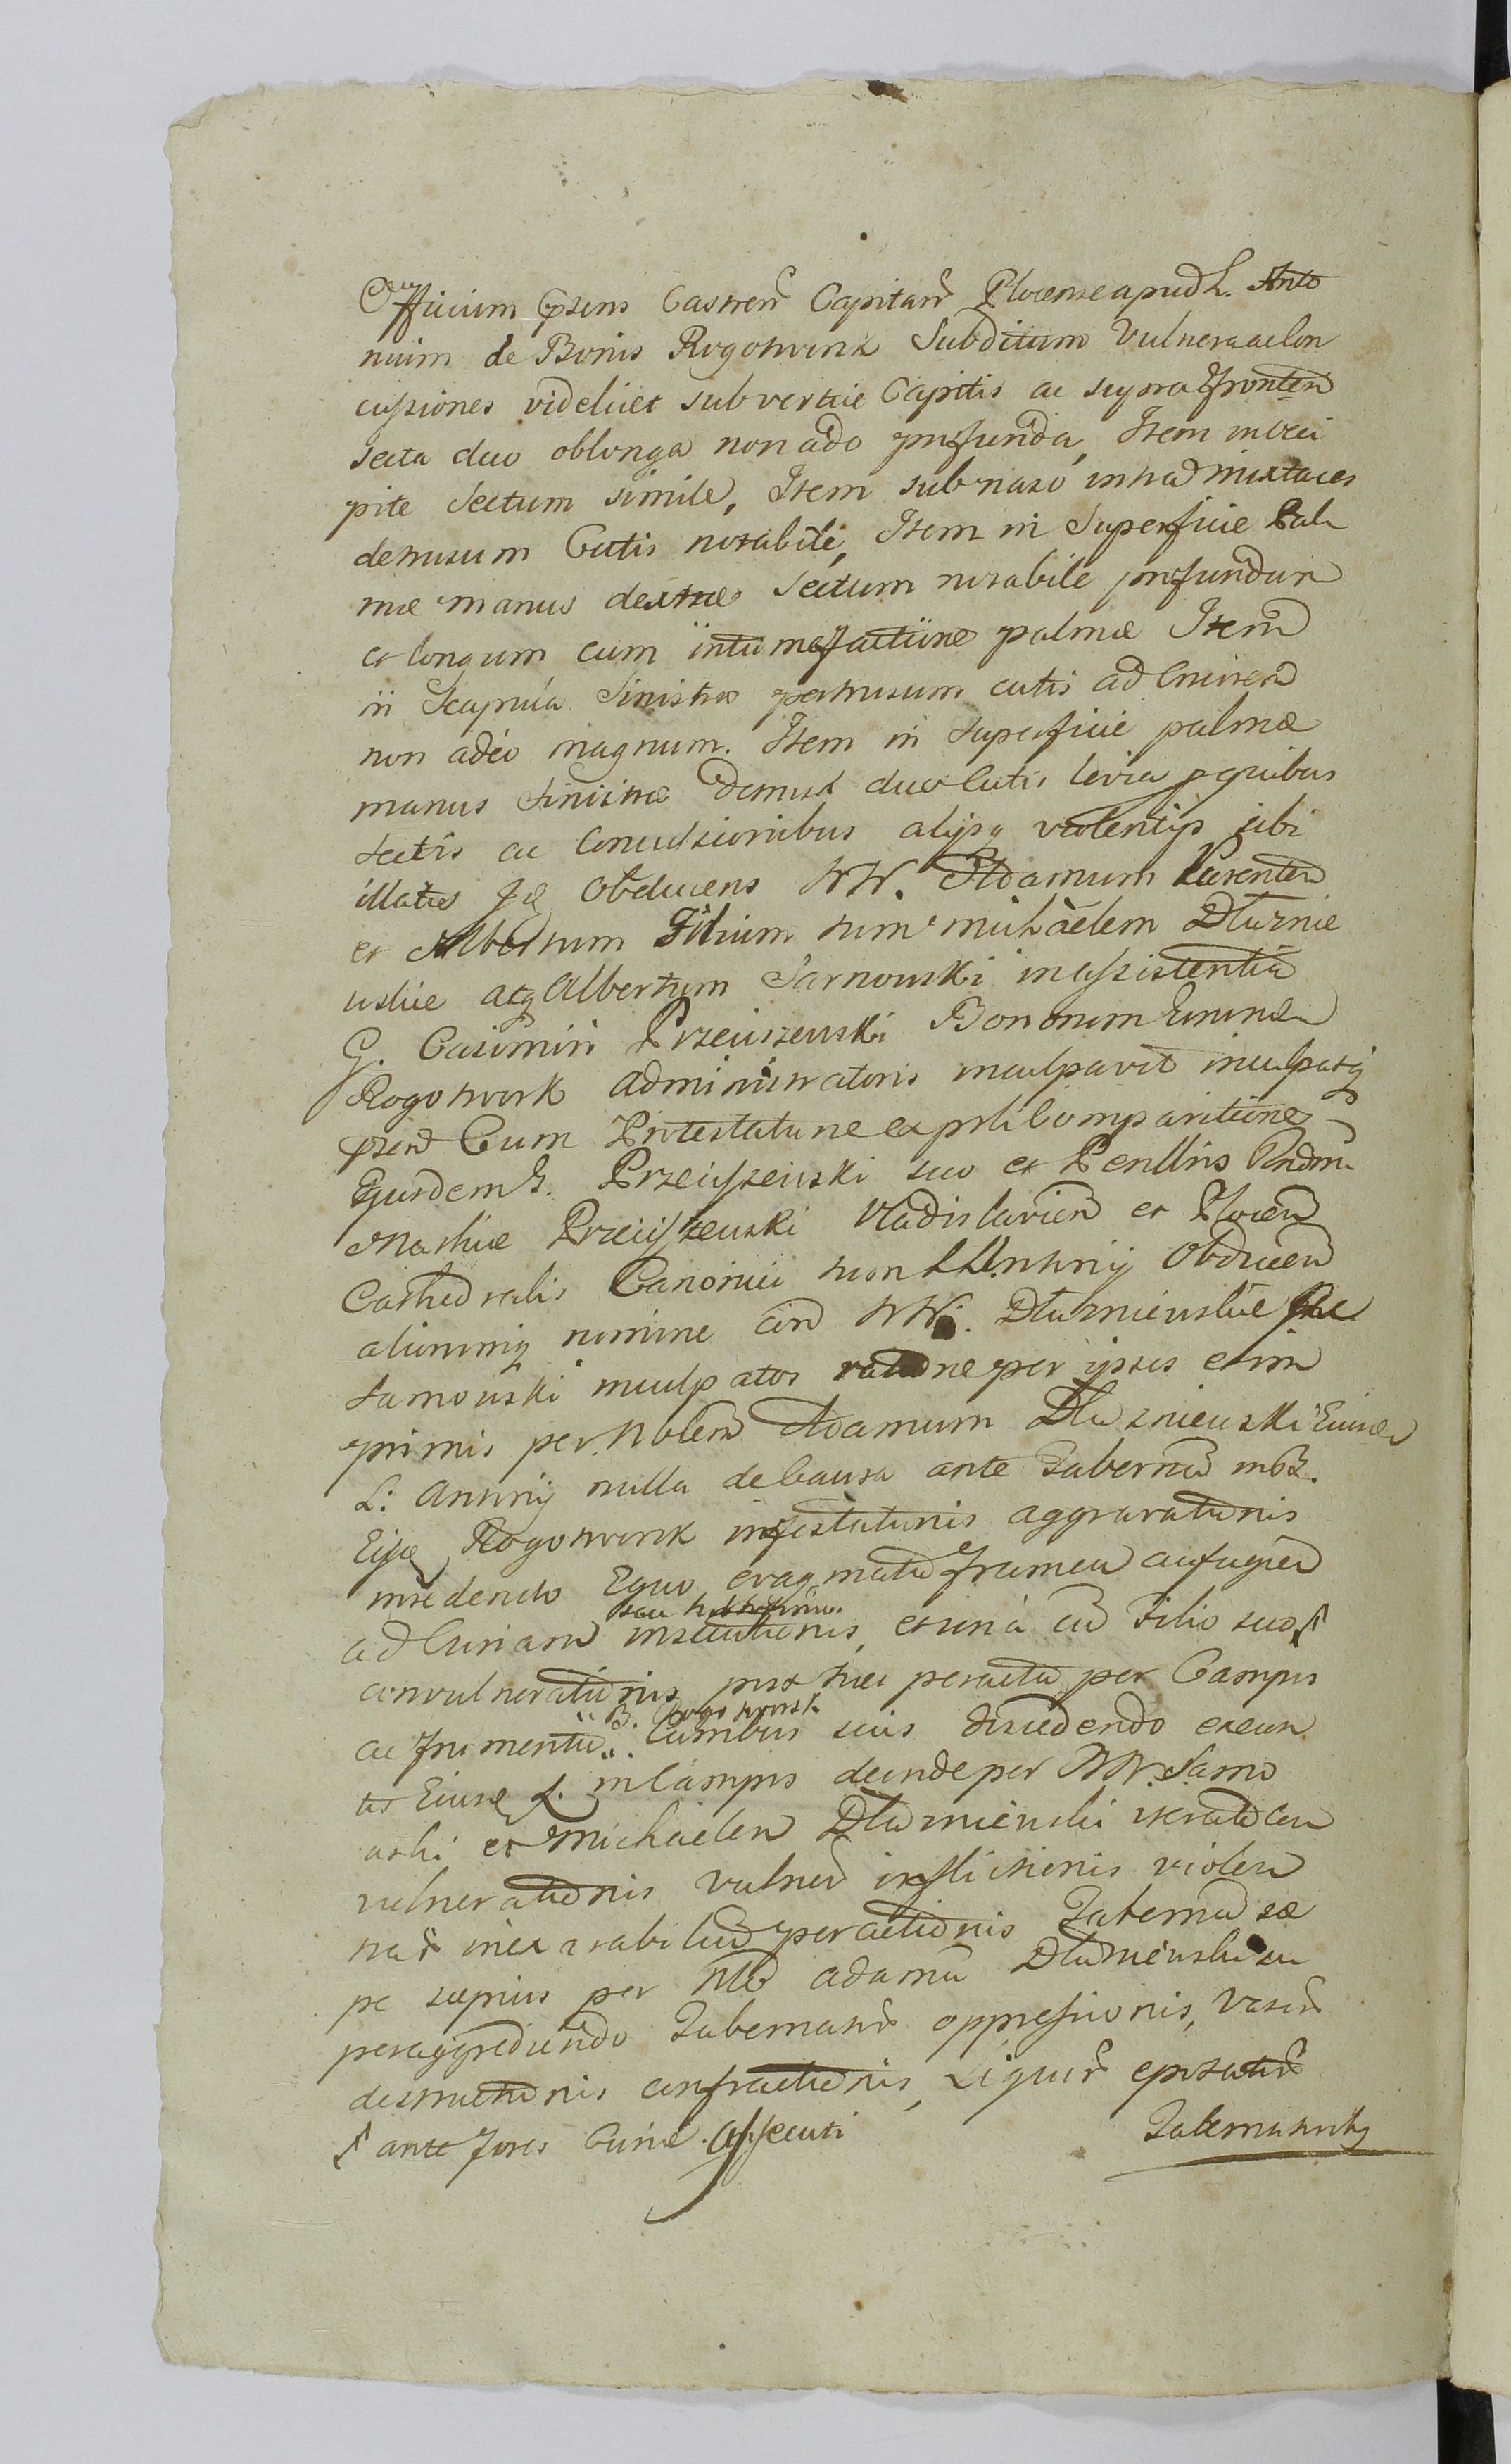 Officium Cpsens Castren Capitan Plocense apud L. Anto
nium de Bonis Rogotwork Subditum Vulnera ac Con
cussiones videlicet sub vertice Capitis ac supra frontem
secta duo oblonga non ado profunda, Item in occi
pite Sectum simile, Item sub naso intra mixtaces
demusum Cutis notabile, Item in Superficie Pal
mæ manus dextræ Sectum notabile profundum
et longum cum intumefactione palmæ Item
in Scapula Sinistra pertusum cutis ad Cruorem
non adeo magnum. Item in superficie palmæ
manus sinistræ duo Cutis levia p quibus
sectis ac Concussionibus alijsq violentijs sibi
illatis se obducens NN. Adamum Parentem
et Albertum Filium tum Michaelem Dłuznie
wskie atq Albertum Sarnowski in assistentia
G. Casimiri Przeciszewski Bonorum Eorundem
Rogotwork Administratoris inculpavit inculpatq
psens Cum Protestatione ex psti Comparitione
Ejusdem G. Przeciszewski suo et Perillris Rndmi
Mathiæ Przeciszewski Vladislavien et Plocen
Cathedralis Canonici tum L. Antonij Obducen
aliorumq nomine con NN. Dłuzniewskie
Sarnowski inculpatos ratione per ipsos et im
primis per Noblem Adamum Dłuzniewski Eiusdem
L: Antonij nulla de Causa ante Tabernam in Bs.
Eisde Rogotwork infestationis aggravationis
insedendo Equo evaginata framea aufugien
ad Curiam insecutionis, et una cu Filio suo
convulnerationis post hæc peracta per Campos
B. Rogotworsk
ac frumenta Canibus suis discedendo
L. in Campis deinde per NN. Sarno
wski et Michaelem Dłuzniewski iterata con
vulnerationis vulneru inflictionis violen
peractionis Taberna sæ
pe sæpius per Nlem Adamu Dłuzniewski
peraggrediendo Tabernator oppressionis, Vasor
destructionis confractionis, Liquor epotation
ante fores Curiæ Assecuti
Tabernatoriq